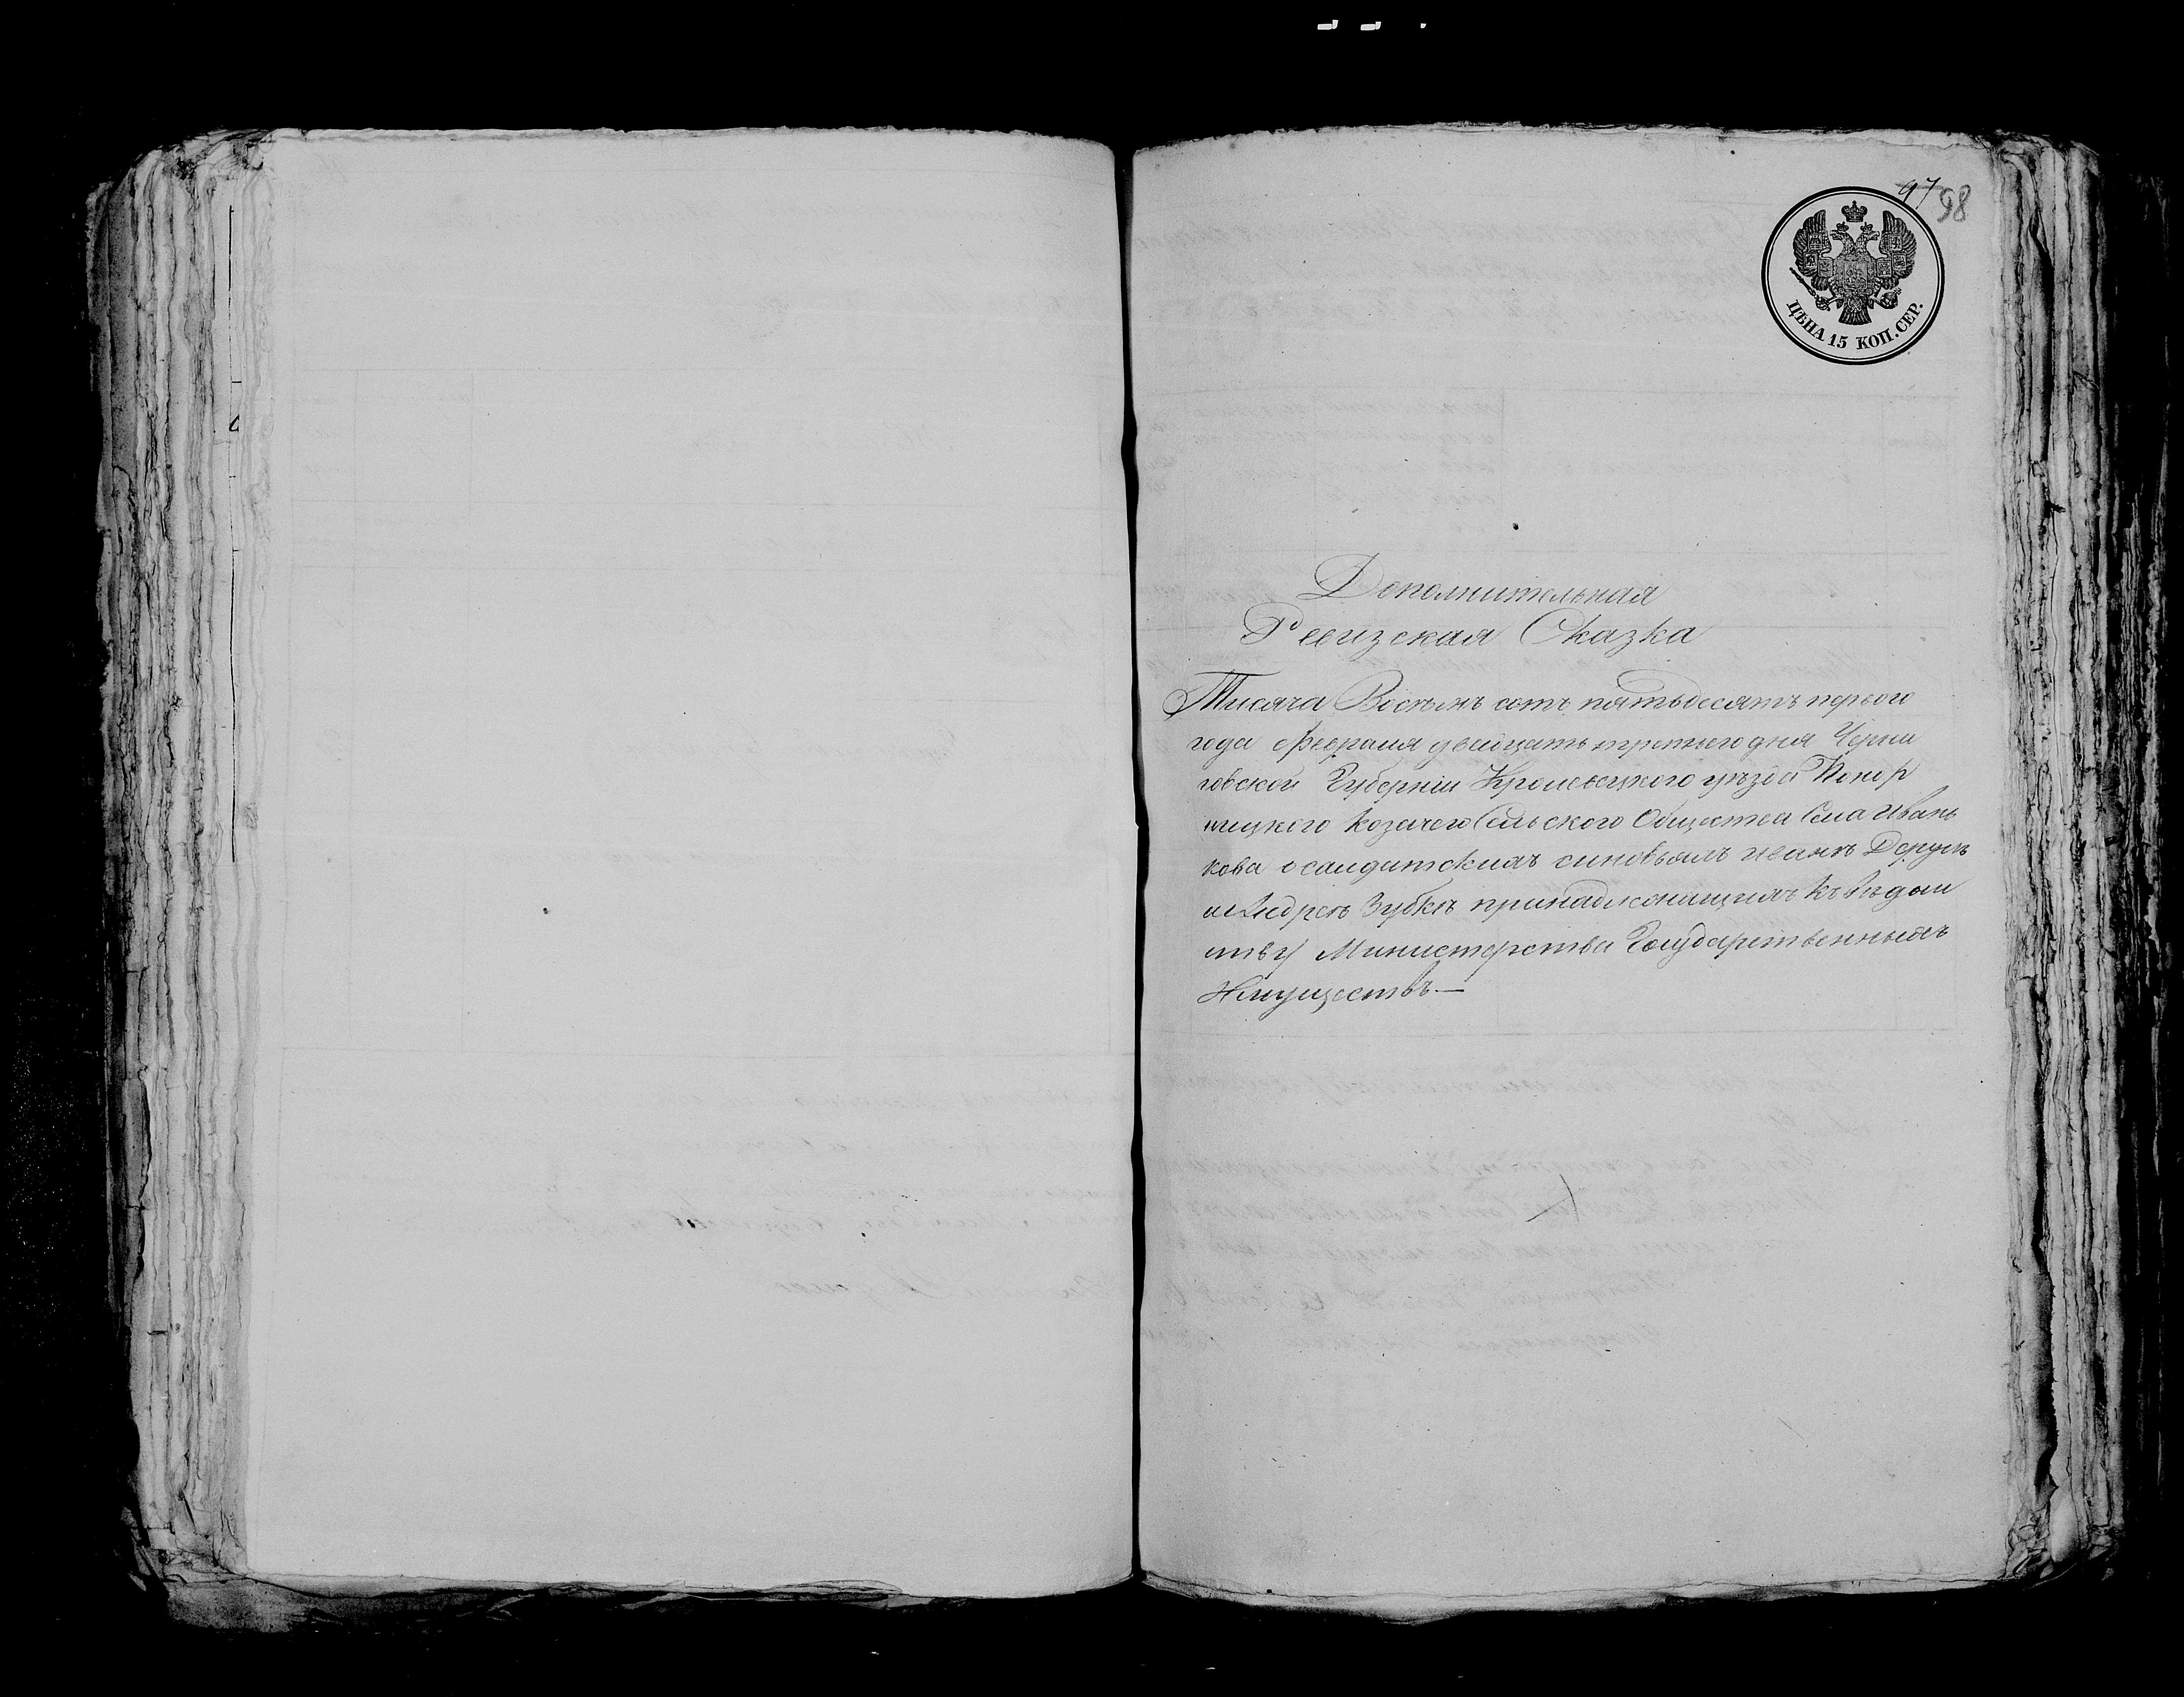 97 98
ЦѢНА 15 КОП. СЕР.
Дополнительная
Ревизская Сказка
Тисяча Восемъ сотъ пятьдесятъ первого
года февраля двадцать третего дня Черни
говской Губерніи Кролевецкого уѣзда Понор
ницкого Козачего Сельского Общества Села Ивань
кова о солдатскихъ синовьяхъ Иванѣ
и Андреѣ Зубкѣ принадлежащихъ къ вѣдом
ству Министерства Государственныхъ
Имуществъ.—